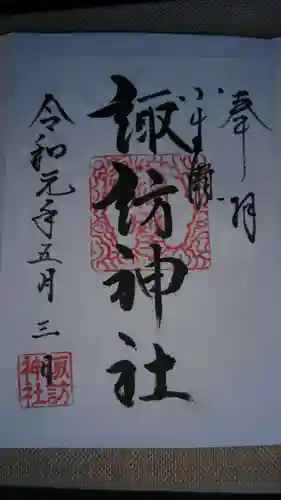 奉拝
諏訪神社
令和元年五月三日
諏訪
神社